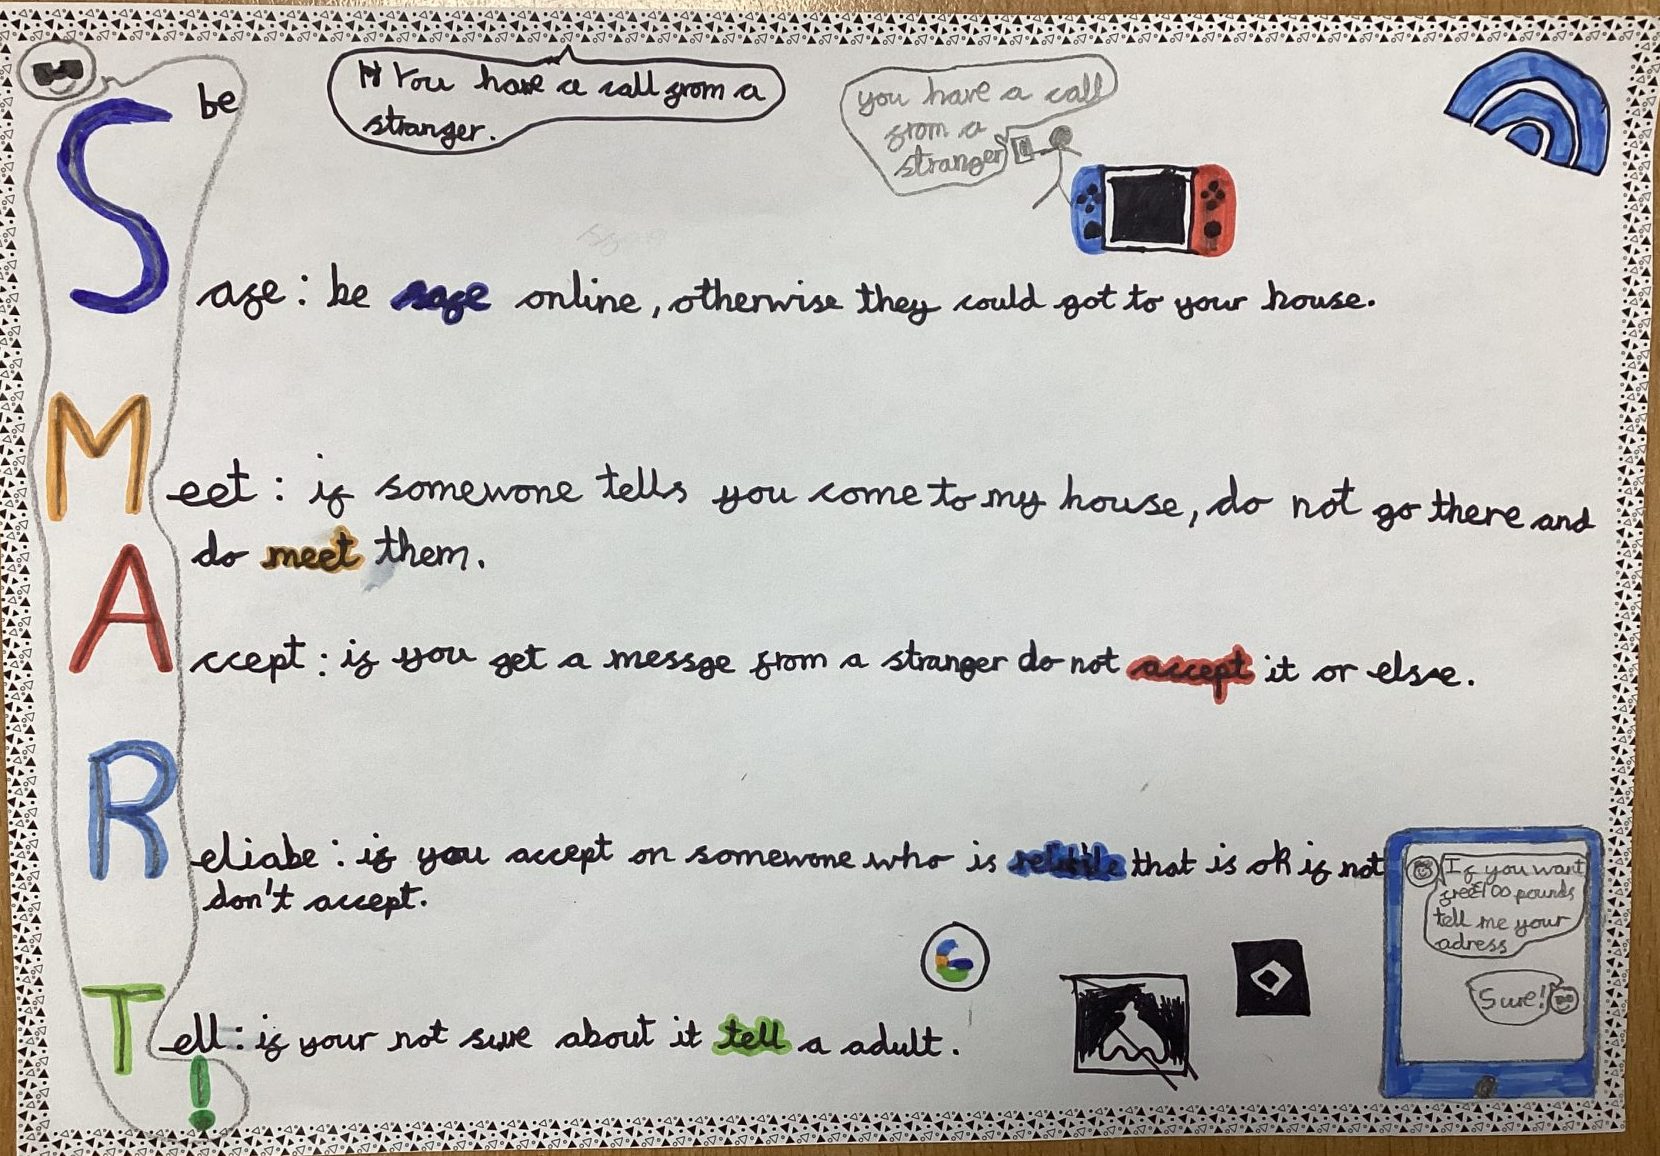 be
You have a call from a
stranger.
you have a call
from a
stranger
Safe: be safe online, otherwise they could got to your house.
Meet: if somewone tells you come to my house, do not go there and
do meet them.
Accept: if you get a messge from a stranger do not accept it or else.
Reliabe: if you accept on somewone who is that is ok if not
don't accept.
If you want
free £100 pounds
tell me your
adress
Sure!
Tell: if your not sure about it tell a adult.
!